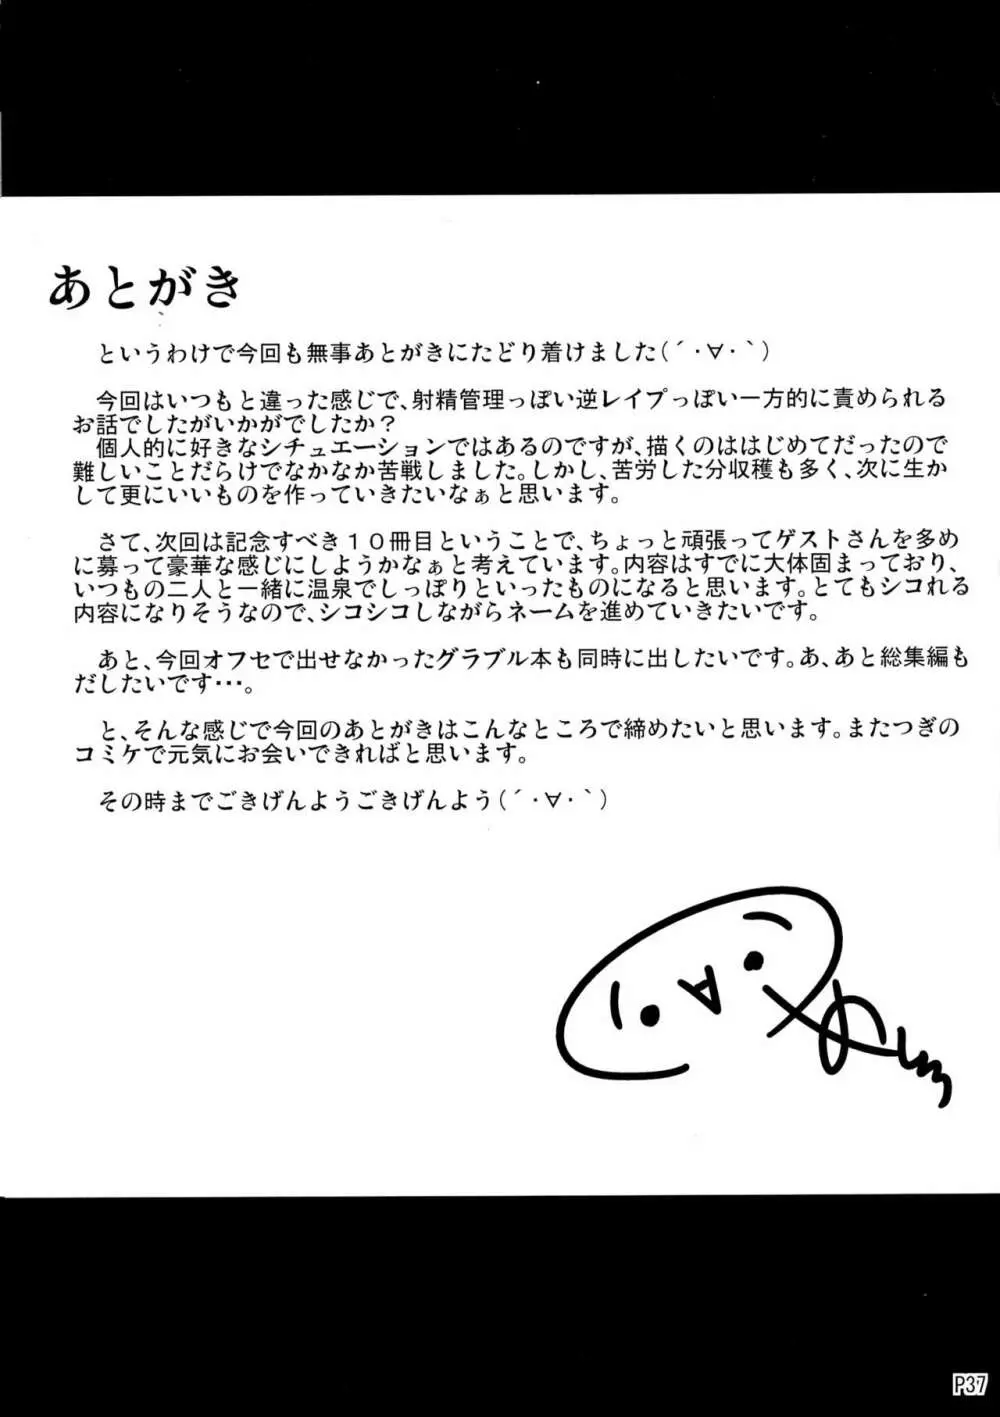 あとがき
というわけで今回も無事あとがきにたどり着けました(´･∀･`)
今回はいつもと違った感じで、射精管理っぽい逆レイプっぽい一方的に責められる
お話でしたがいかがでしたか？
個人的に好きなシチュエーションではあるのですが、描くのははじめてだったので
難しいことだらけでなかなか苦戦しました。しかし、苦労した分収穫も多く、次に生か
して更にいいものを作っていきたいなぁと思います。
さて、次回は記念すべき１０冊目ということで、ちょっと頑張ってゲストさんを多め
に募って豪華な感じにしようかなぁと考えています。内容はすでに大体固まっており、
いつもの二人と一緒に温泉でしっぽりといったものになると思います。とてもシコれる
内容になりそうなので、シコシコしながらネームを進めていきたいです。
あと、今回オフセで出せなかったグラブル本も同時に出したいです。あ、あと総集編も
だしたいです･･･。
と、そんな感じで今回のあとがきはこんなところで締めたいと思います。またつぎの
コミケで元気にお会いできればと思います。
その時までごきげんようごきげんよう(´･∀･`)
P37